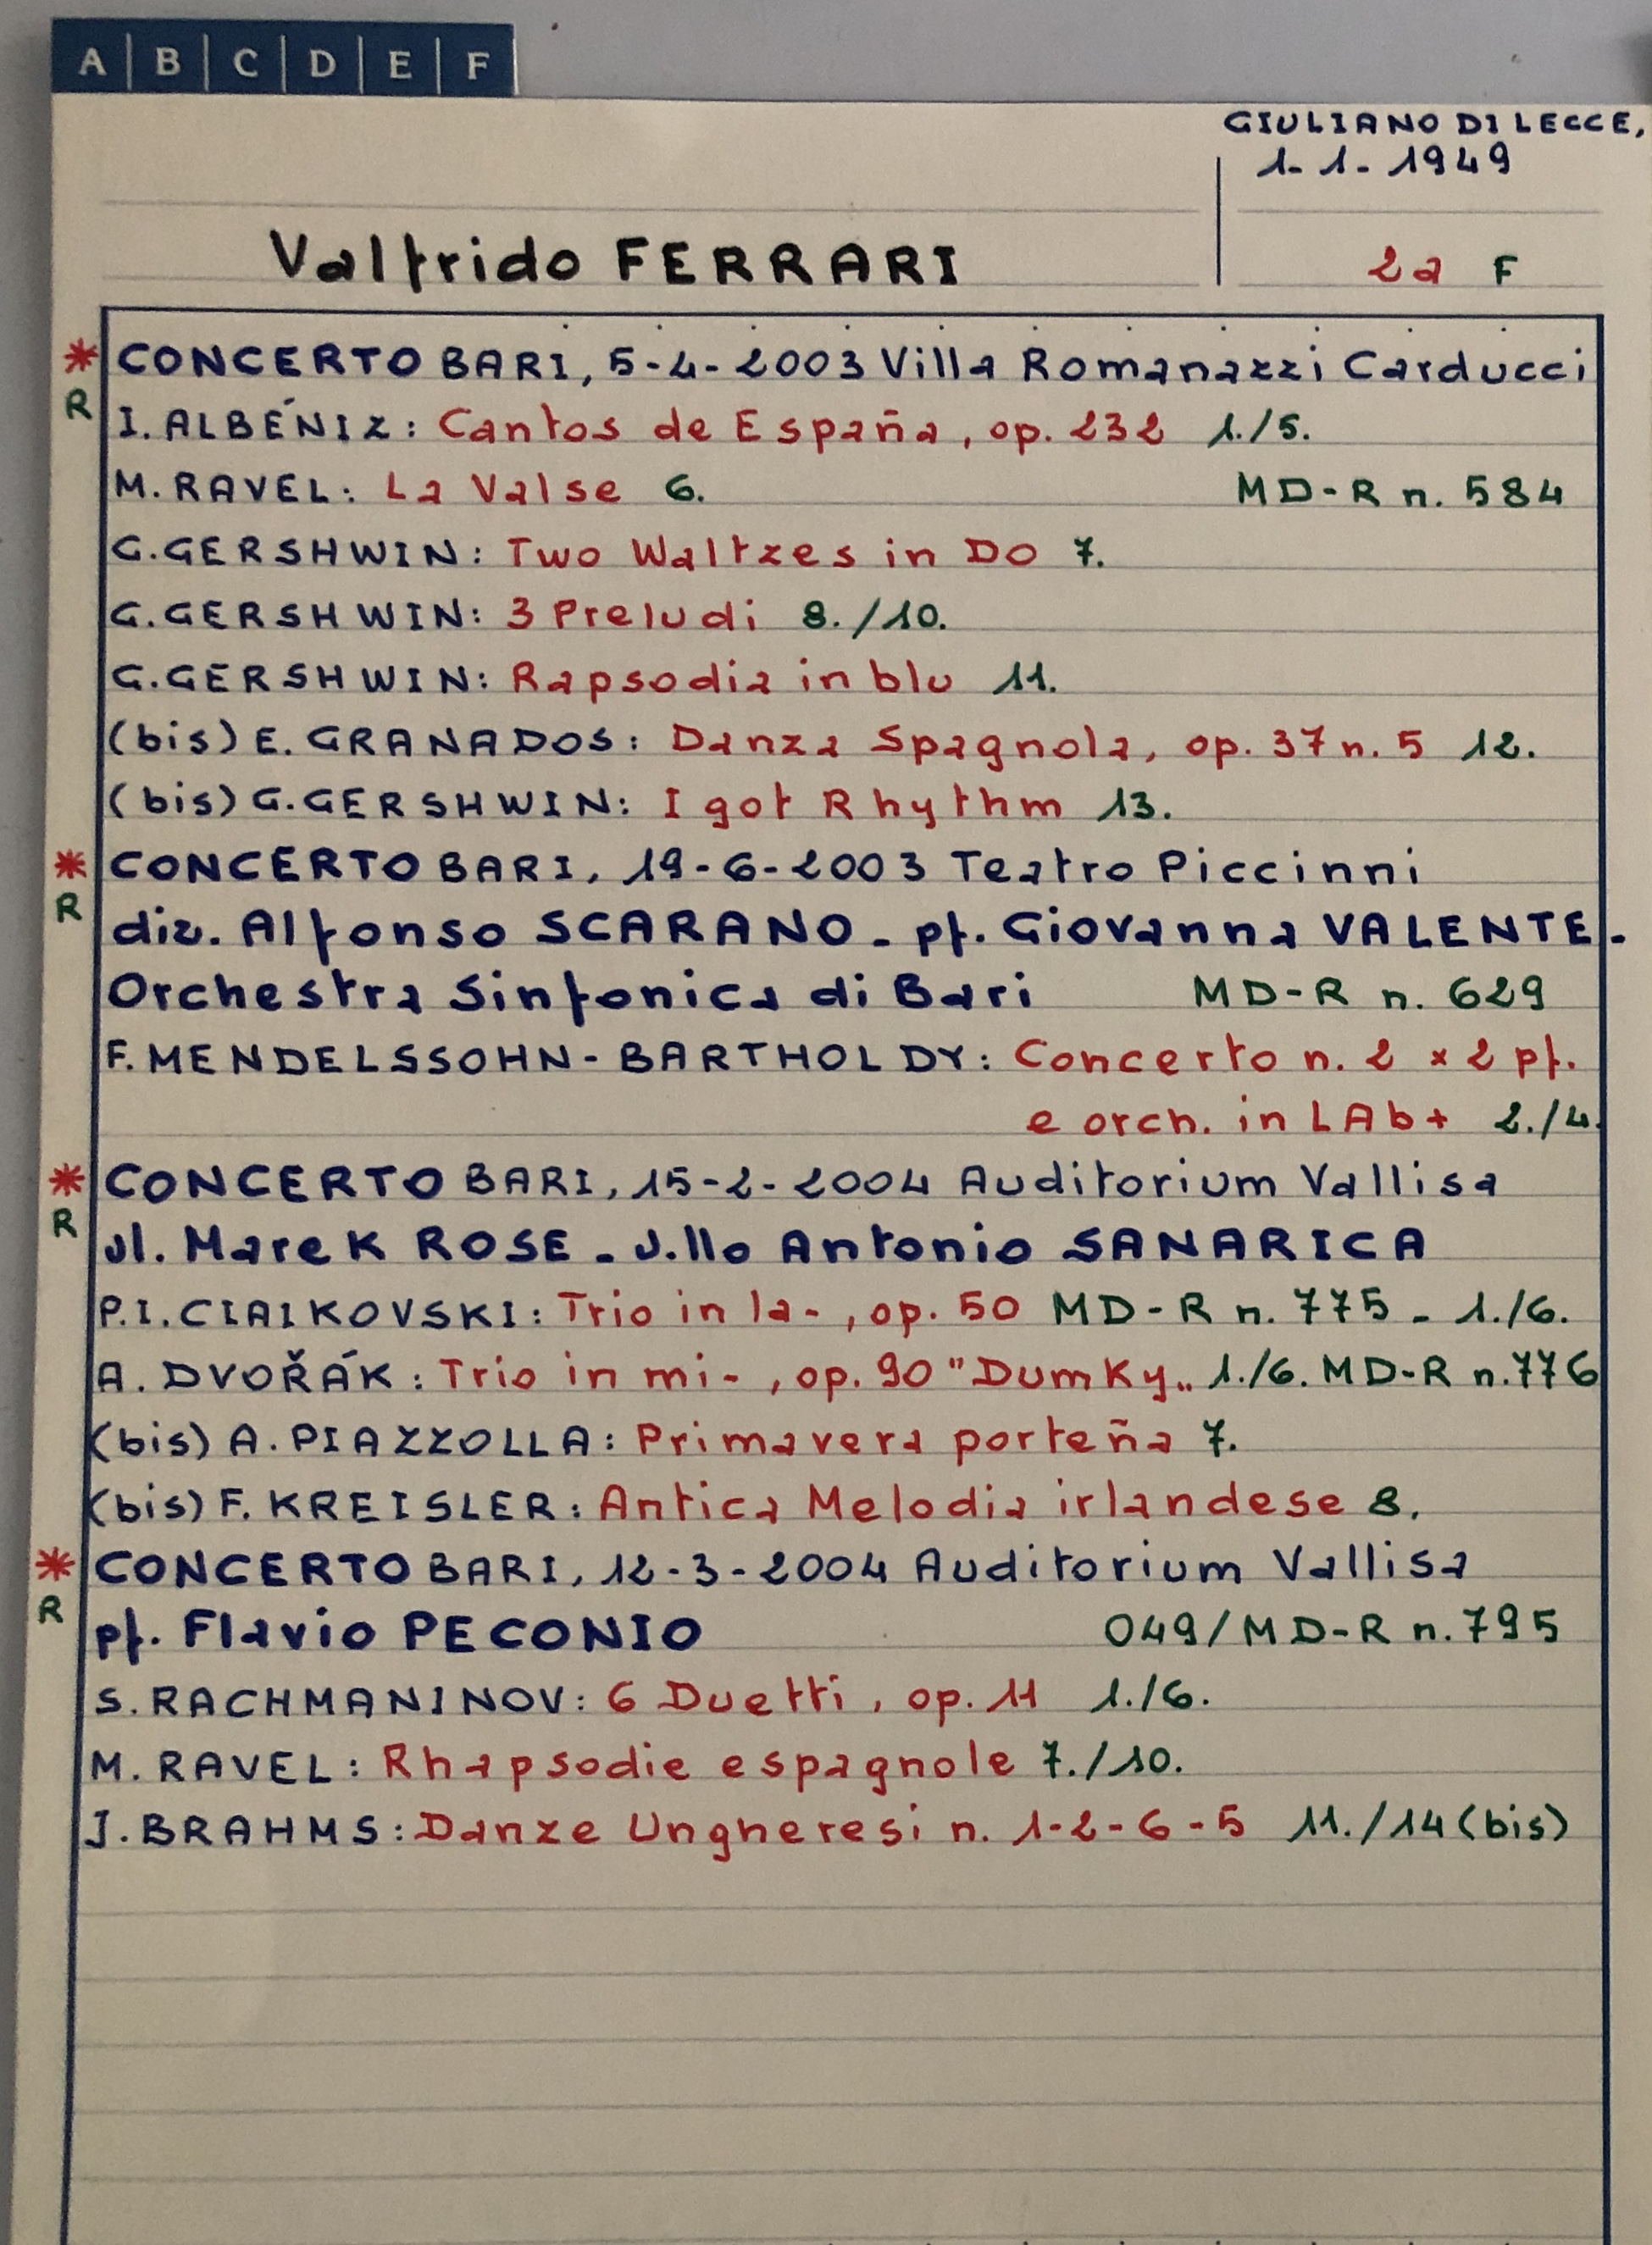 A B C D E F
GIULIANO DI LECCE,
1-1-1949
Valfrido FERRARI
2a F
* CONCERTO BARI, 5-4-2003 Villa Romanazzi Carducci
R I. ALBÉNIZ: Cantos de España, op. 232 1./5.
M. RAVEL: La Valse 6. MD-R n. 584
G. GERSHWIN: Two Waltzes in Do 7.
G. GERSHWIN: 3 Preludi 8./10.
G. GERSHWIN: Rapsodia in blu 11.
(bis) E. GRANADOS: Danza Spagnola, op. 37 n. 5 12.
(bis) G. GERSHWIN: I got Rhythm 13.
* CONCERTO BARI, 19-6-2003 Teatro Piccinni
R dir. Alfonso SCARANO - pf. Giovanna VALENTE -
Orchestra Sinfonica di Bari MD-R n. 629
F. MENDELSSOHN-BARTHOLDY: Concerto n. 2 x 2 pf.
e orch. in LAb+ 2./4.
* CONCERTO BARI, 15-2-2004 Auditorium Vallisa
R vl. Marek ROSE - v.llo Antonio SANARICA
P.I. CIAIKOVSKI: Trio in la-, op. 50 MD-R n. 775 - 1./6.
A. DVOŘÁK: Trio in mi-, op. 90 "Dumky" 1./6. MD-R n. 776
(bis) A. PIAZZOLLA: Primavera porteña 7.
(bis) F. KREISLER: Antica Melodia irlandese 8.
* CONCERTO BARI, 12-3-2004 Auditorium Vallisa
R pf. Flavio PECONIO 049/MD-R n. 795
S. RACHMANINOV: 6 Duetti, op. 11 1./6.
M. RAVEL: Rhapsodie espagnole 7./10.
J. BRAHMS: Danze Ungheresi n. 1-2-6-5 11./14 (bis)